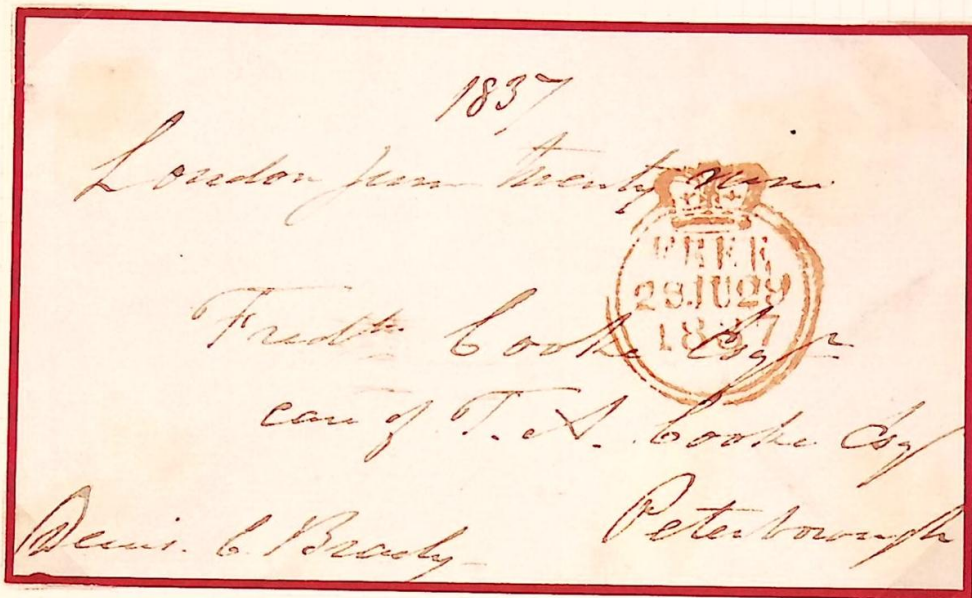 1837
London June twenty nine
FREE
28JU29
1837
Fredk. Cooke Esqr
care of T. A. Cooke Esq
Peterborough
Denis. C. Brady